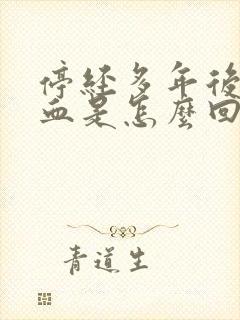 停經多年後
血是怎麼回
青道生